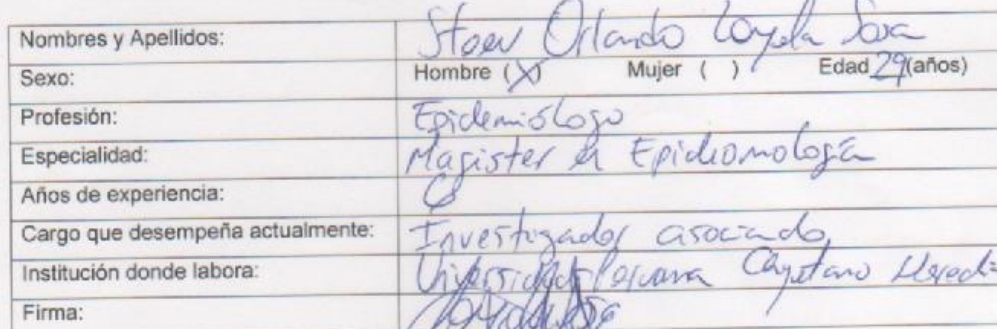 Nombres y Apellidos: Orlando Loyola
Sexo: Hombre (X) Mujer ( ) Edad 29 (años)
Profesión: Epidemiólogo
Especialidad: Magister en Epidemiología
Años de experiencia: 6
Cargo que desempeña actualmente: Investigador asociado
Institución donde labora: Universidad Peruana Cayetano Heredi
Firma: